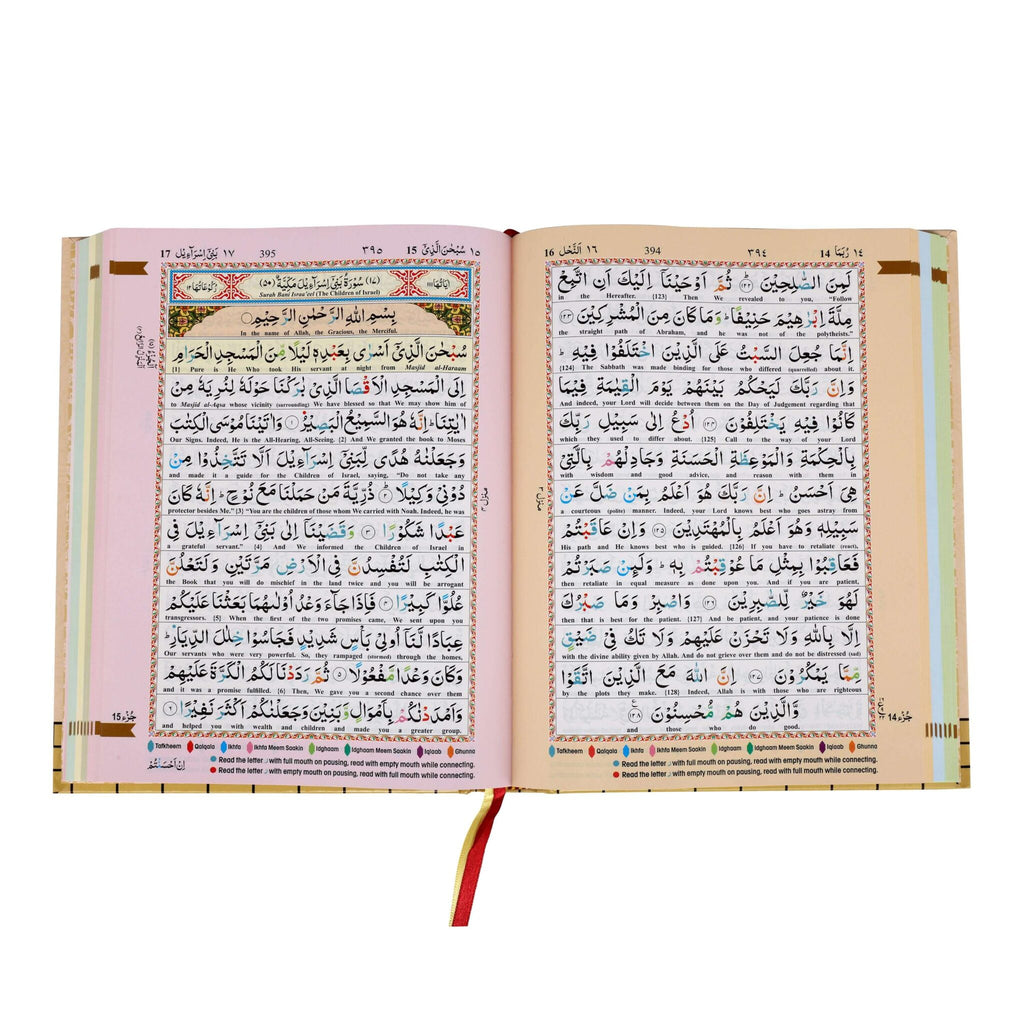 16 اَلنَّحْل ١٦ 394 ٣٩٤ 14 رُبَمَا ١٤
لَمِنَ الصّٰلِحِيْنَ ﴿١٢٢﴾ ثُمَّ اَوْحَيْنَاۤ اِلَيْكَ اَنِ اتَّبِعْ
in the Hereafter. {123} Then We revealed to you, "Follow
مِلَّةَ اِبْرٰهِيْمَ حَنِيْفًا ؕ وَمَا كَانَ مِنَ الْمُشْرِكِيْنَ ﴿١٢٣﴾
the straight path of Abraham, and he was not of the polytheists."
اِنَّمَا جُعِلَ السَّبْتُ عَلَى الَّذِيْنَ اخْتَلَفُوْا فِيْهِ ؕ
{124} The Sabbath was made binding for those who differed (quarrelled) about it.
وَاِنَّ رَبَّكَ لَيَحْكُمُ بَيْنَهُمْ يَوْمَ الْقِيٰمَةِ فِيْمَا
And indeed, your Lord will decide between them on the Day of Judgement regarding that
كَانُوْا فِيْهِ يَخْتَلِفُوْنَ ﴿١٢٤﴾ اُدْعُ اِلٰى سَبِيْلِ رَبِّكَ
which they used to differ about. {125} Call to the way of your Lord
بِالْحِكْمَةِ وَالْمَوْعِظَةِ الْحَسَنَةِ وَجَادِلْهُمْ بِالَّتِيْ
with wisdom and good advice, and reason with them in
هِيَ اَحْسَنُ ؕ اِنَّ رَبَّكَ هُوَ اَعْلَمُ بِمَنْ ضَلَّ عَنْ
a courteous (polite) manner. Indeed, your Lord knows best who goes astray from
سَبِيْلِهٖ وَهُوَ اَعْلَمُ بِالْمُهْتَدِيْنَ ﴿١٢٥﴾ وَاِنْ عَاقَبْتُمْ
His path and He knows best who is guided. {126} If you have to retaliate (react),
فَعَاقِبُوْا بِمِثْلِ مَا عُوْقِبْتُمْ بِهٖ ؕ وَلَئِنْ صَبَرْتُمْ
then retaliate in equal measure as done upon you. And if you are patient,
لَهُوَ خَيْرٌ لِّلصّٰبِرِيْنَ ﴿١٢٦﴾ وَاصْبِرْ وَمَا صَبْرُكَ
then that is best for the patient. {127} And be patient, and your patience is done
اِلَّا بِاللّٰهِ وَلَا تَحْزَنْ عَلَيْهِمْ وَلَا تَكُ فِيْ ضَيْقٍ
with the divine ability given by Allah. And do not grieve over them and do not be distressed (sad)
مِّمَّا يَمْكُرُوْنَ ﴿١٢٧﴾ اِنَّ اللّٰهَ مَعَ الَّذِيْنَ اتَّقَوْا
by the plots they make. {128} Indeed, Allah is with those who are righteous
وَّالَّذِيْنَ هُمْ مُّحْسِنُوْنَ ﴿١٢٨﴾
and those who do good.
منزل ٣
جُزْء 14
Tafkheem Qalqala Ikhfa Ikhfa Meem Saakin Idghaam Idghaam Meem Saakin Iqlaab Ghunna
Read the letter ر with full mouth on pausing, read with empty mouth while connecting.
Read the letter ر with empty mouth on pausing, read with full mouth while connecting.
17 بَنِيْۤ اِسْرَآءِيْل ١٧ 395 ٣٩٥ 15 سُبْحٰنَ الَّذِيْۤ ١٥
اٰيَاتُهَا ١١١ (١٧) سُوْرَةُ بَنِيْۤ اِسْرَآءِيْلَ مَكِّيَّةٌ (٥٠) رُكُوْعَاتُهَا ١٢
Surah Bani Israa'eel (The Children of Israel)
بِسْمِ اللّٰهِ الرَّحْمٰنِ الرَّحِيْمِ
In the name of Allah, the Gracious, the Merciful.
سُبْحٰنَ الَّذِيْۤ اَسْرٰى بِعَبْدِهٖ لَيْلًا مِّنَ الْمَسْجِدِ الْحَرَامِ
{1} Pure is He Who took His servant at night from Masjid al-Haraam
اِلَى الْمَسْجِدِ الْاَقْصَا الَّذِيْ بٰرَكْنَا حَوْلَهٗ لِنُرِيَهٗ مِنْ
to Masjid al-Aqsa whose vicinity (surrounding) We have blessed so that We may show him of
اٰيٰتِنَا ؕ اِنَّهٗ هُوَ السَّمِيْعُ الْبَصِيْرُ ﴿١﴾ وَاٰتَيْنَا مُوْسَى الْكِتٰبَ
Our Signs. Indeed, He is the All-Hearing, All-Seeing. {2} And We granted the book to Moses
وَجَعَلْنٰهُ هُدًى لِّبَنِيْۤ اِسْرَآءِيْلَ اَلَّا تَتَّخِذُوْا مِنْ
and made it a guide for the Children of Israel, saying, "Do not take any
دُوْنِيْ وَكِيْلًا ﴿٢﴾ ذُرِّيَّةَ مَنْ حَمَلْنَا مَعَ نُوْحٍ ؕ اِنَّهٗ كَانَ
protector besides Me." {3} "You are the children of those whom We carried with Noah. Indeed, he was
عَبْدًا شَكُوْرًا ﴿٣﴾ وَقَضَيْنَاۤ اِلٰى بَنِيْۤ اِسْرَآءِيْلَ فِي
a grateful servant." {4} And We informed the Children of Israel in
الْكِتٰبِ لَتُفْسِدُنَّ فِي الْاَرْضِ مَرَّتَيْنِ وَلَتَعْلُنَّ
the Book that you will do mischief in the land twice and you will be arrogant
عُلُوًّا كَبِيْرًا ﴿٤﴾ فَاِذَا جَآءَ وَعْدُ اُوْلٰىهُمَا بَعَثْنَا عَلَيْكُمْ
transgressors. {5} When the first of the two promises came, We sent upon you
عِبَادًا لَّنَاۤ اُولِيْ بَاْسٍ شَدِيْدٍ فَجَاسُوْا خِلٰلَ الدِّيَارِ ؕ
Our servants who were very powerful. So, they rampaged (stormed) through the homes,
وَكَانَ وَعْدًا مَّفْعُوْلًا ﴿٥﴾ ثُمَّ رَدَدْنَا لَكُمُ الْكَرَّةَ عَلَيْهِمْ
and it was a promise fulfilled. {6} Then, We gave you a second chance over them
وَاَمْدَدْنٰكُمْ بِاَمْوَالٍ وَّبَنِيْنَ وَجَعَلْنٰكُمْ اَكْثَرَ نَفِيْرًا ﴿٦﴾
and helped you with wealth and children and made you a greater group.
منزل ٣
جُزْء 15
Tafkheem Qalqala Ikhfa Ikhfa Meem Saakin Idghaam Idghaam Meem Saakin Iqlaab Ghunna
Read the letter ر with full mouth on pausing, read with empty mouth while connecting.
Read the letter ر with empty mouth on pausing, read with full mouth while connecting.
اِنْ اَحْسَنْتُمْ